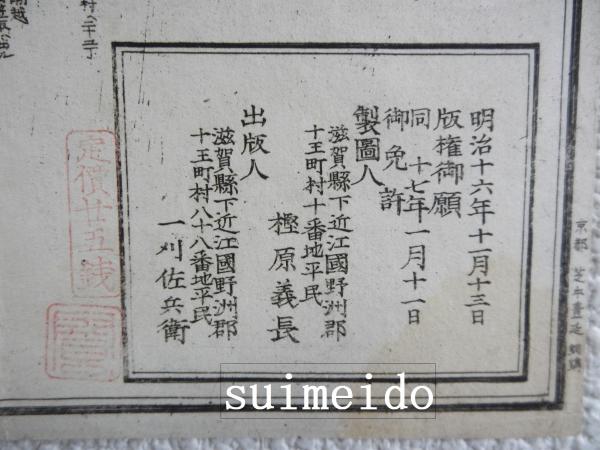 明治十六年十一月十三日
版権御願
同　十七年一月十一日
御免許
製圖人
滋賀縣下近江國野洲郡
十王町村十番地平民
樫原義長
出版人
滋賀縣下近江國野洲郡
十王町村八十八番地平民
一刈佐兵衛
定價廿五錢
suimeido